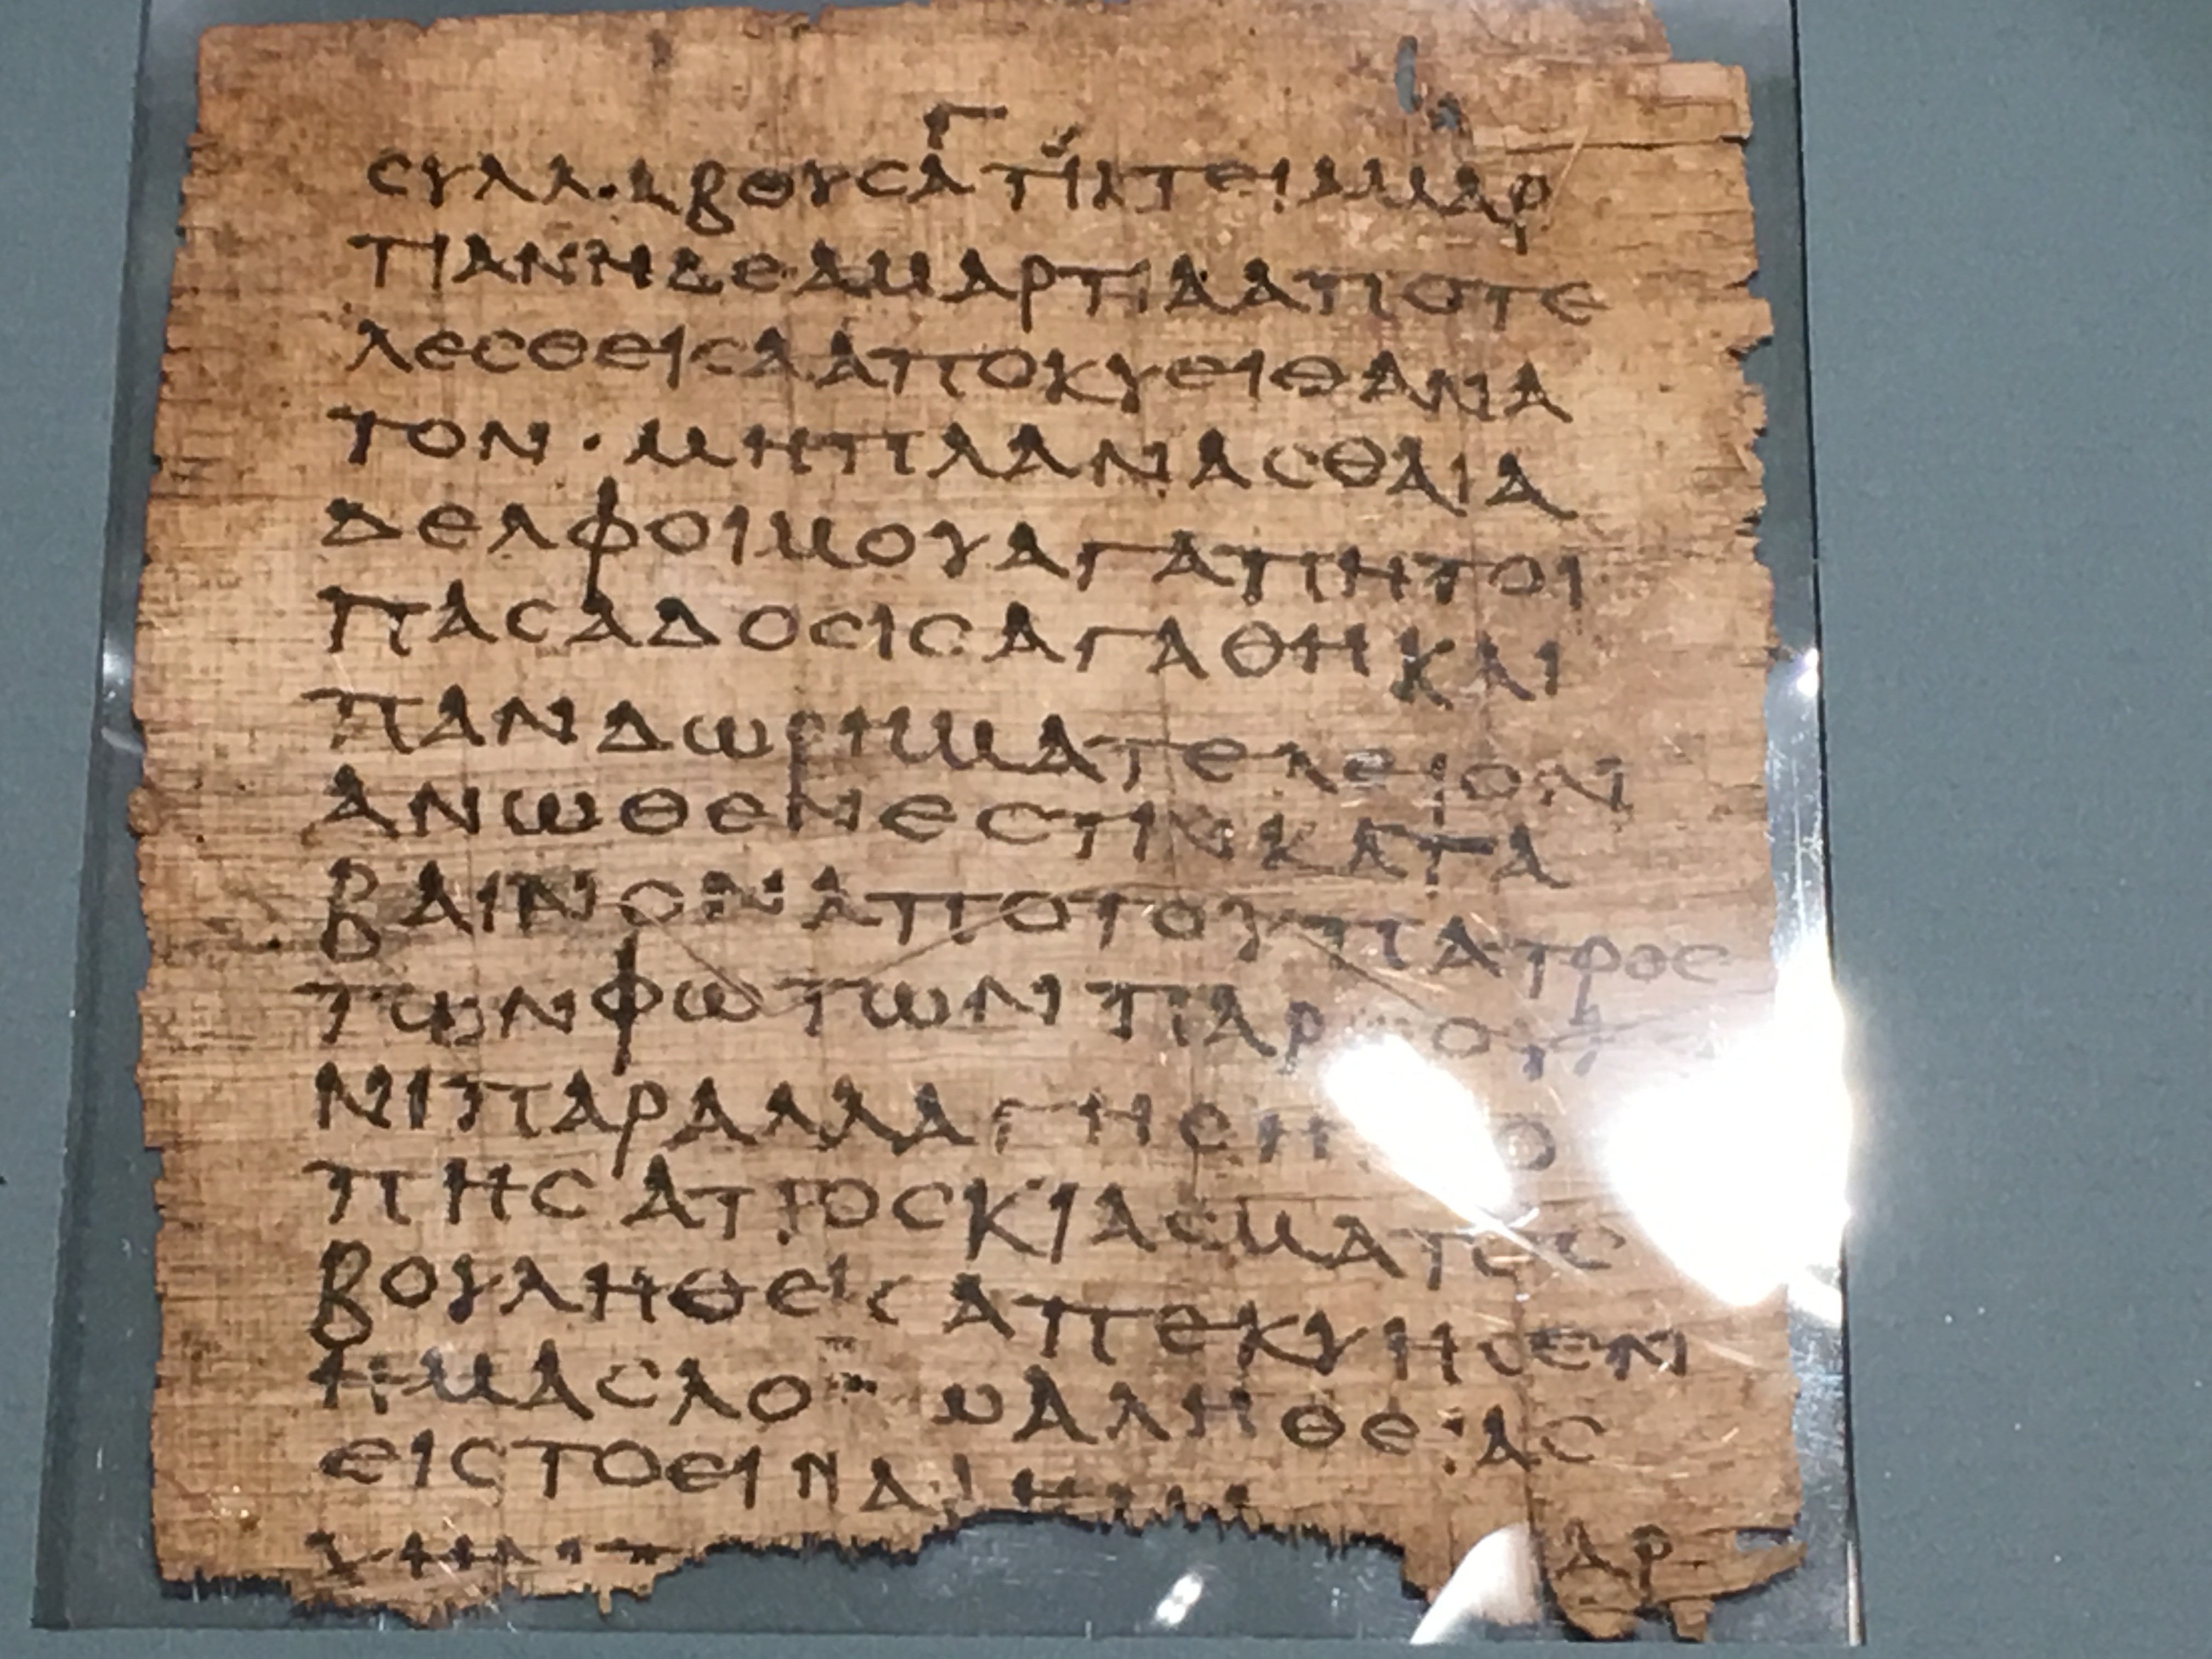 Γ
ΣΥΛΛ.ΑΒΟΥΣΑ ΤΙΚΤΕΙ ΑΜΑΡ
ΤΙΑΝ Η ΔΕ ΑΜΑΡΤΙΑ ΑΠΟΤΕ
ΛΕΣΘΕΙΣΑ ΑΠΟΚΥΕΙ ΘΑΝΑ
ΤΟΝ · ΜΗ ΠΛΑΝΑΣΘΑΙ Α
ΔΕΛΦΟΙ ΜΟΥ ΑΓΑΠΗΤΟΙ
ΠΑΣΑ ΔΟΣΙΣ ΑΓΑΘΗ ΚΑΙ
ΠΑΝ ΔΩΡΗΜΑ ΤΕΛΕΙΟΝ
ΑΝΩΘΕΝ ΕΣΤΙΝ ΚΑΤΑ
ΒΑΙΝΟΝ ΑΠΟ ΤΟΥ ΠΑΤΡΟΣ
ΤΩΝ ΦΩΤΩΝ ΠΑΡ
ΝΙ ΠΑΡΑΛΛΑΓΗΣ Η
ΠΗΣ ΑΠΟΣΚΙΑΣΜΑΤΟΣ
ΒΟΥΛΗΘΕΙΣ ΑΠΕΚΥΗΣΕΝ
ΗΜΑΣ ΛΟ Ω ΑΛΗΘΕΙΑΣ
ΕΙΣ ΤΟ ΕΙΝΑΙ
ΑΡ